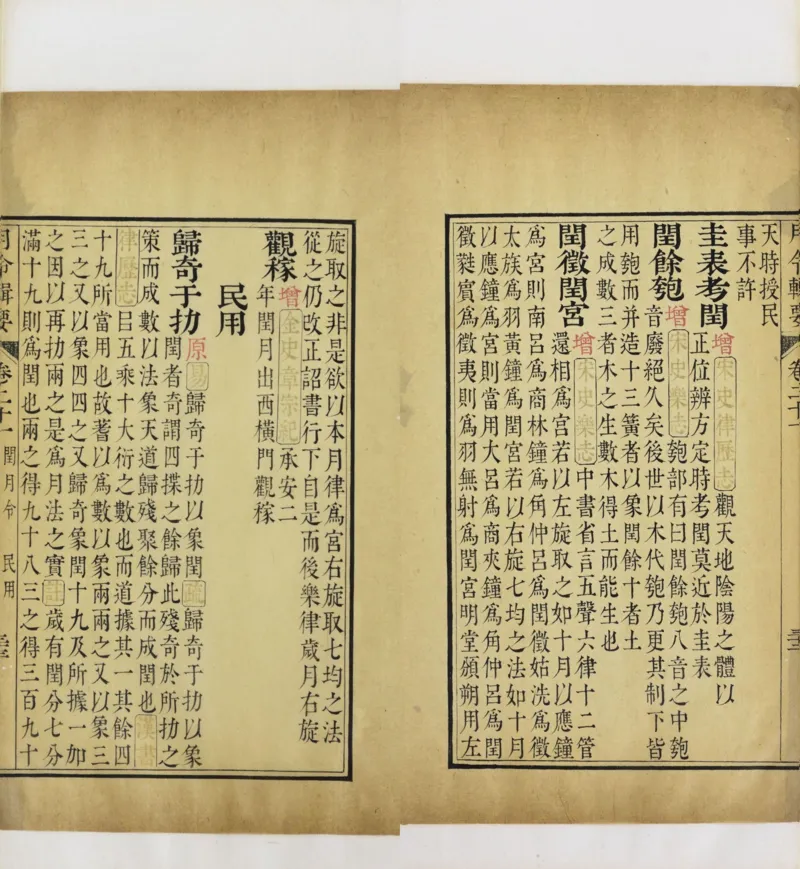 月令輯要 卷二十一
天時授民
事不許
圭表考閏 增 宋史律歷志 觀天地陰陽之體以
正位辨方定時考閏莫近於圭表
閏餘匏 增 宋史樂志 匏部有曰閏餘匏八音之中匏
音廢絕久矣後世以木代匏乃更其制下皆
用匏而并造十三簧者以象閏餘十者土
之成數三者木之生數木得土而能生也
閏徵閏宮 增 宋史樂志 中書省言五聲六律十二管
還相爲宮若以左旋取之如十月以應鐘
爲宮則南呂爲商林鐘爲角仲呂爲閏徵姑洗爲徵
太族爲羽黃鐘爲閏宮若以右旋七均之法如十月
以應鐘爲宮則當用大呂爲商夾鐘爲角仲呂爲閏
徵蕤賓爲徵夷則爲羽無射爲閏宮明堂頒朔用左
旋取之非是欲以本月律爲宮右旋取七均之法
從之仍改正詔書行下自是而後樂律歲月右旋
觀稼 增 金史章宗紀 承安二
年閏月出西橫門觀稼
民用
歸奇于扐 原 易 歸奇于扐以象閏 疏 歸奇于扐以象
閏者奇謂四揲之餘歸此殘奇於所扐之
策而成數以法象天道歸殘聚餘分而成閏也 漢書
律歷志 㠯五乘十大衍之數也而道據其一其餘四
十九所當用也故蓍以爲數以象兩兩之又以象三
三之又以象四四之又歸奇象閏十九及所據一加
之因以再扐兩之是爲月法之實 註 歲有閏分七分
滿十九則爲閏也兩之得九十八三之得三百九十
月令輯要 卷二十一 閏月令 民用